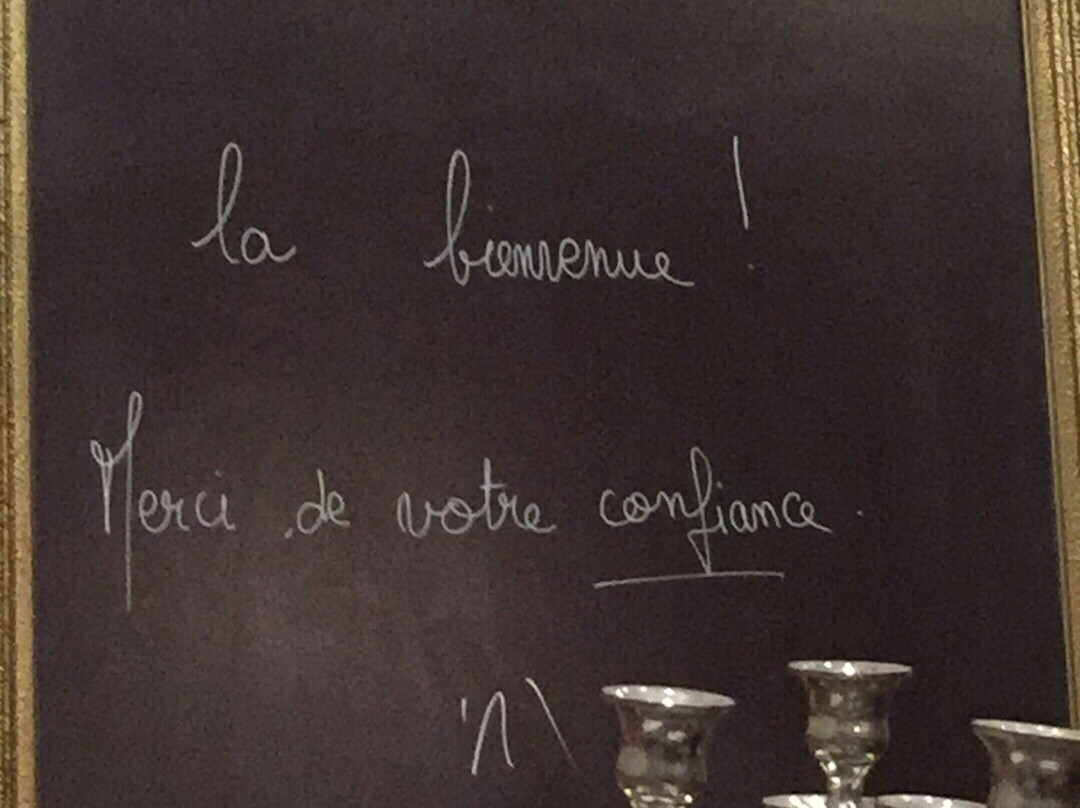 la bienvenue !
Merci de votre confiance.